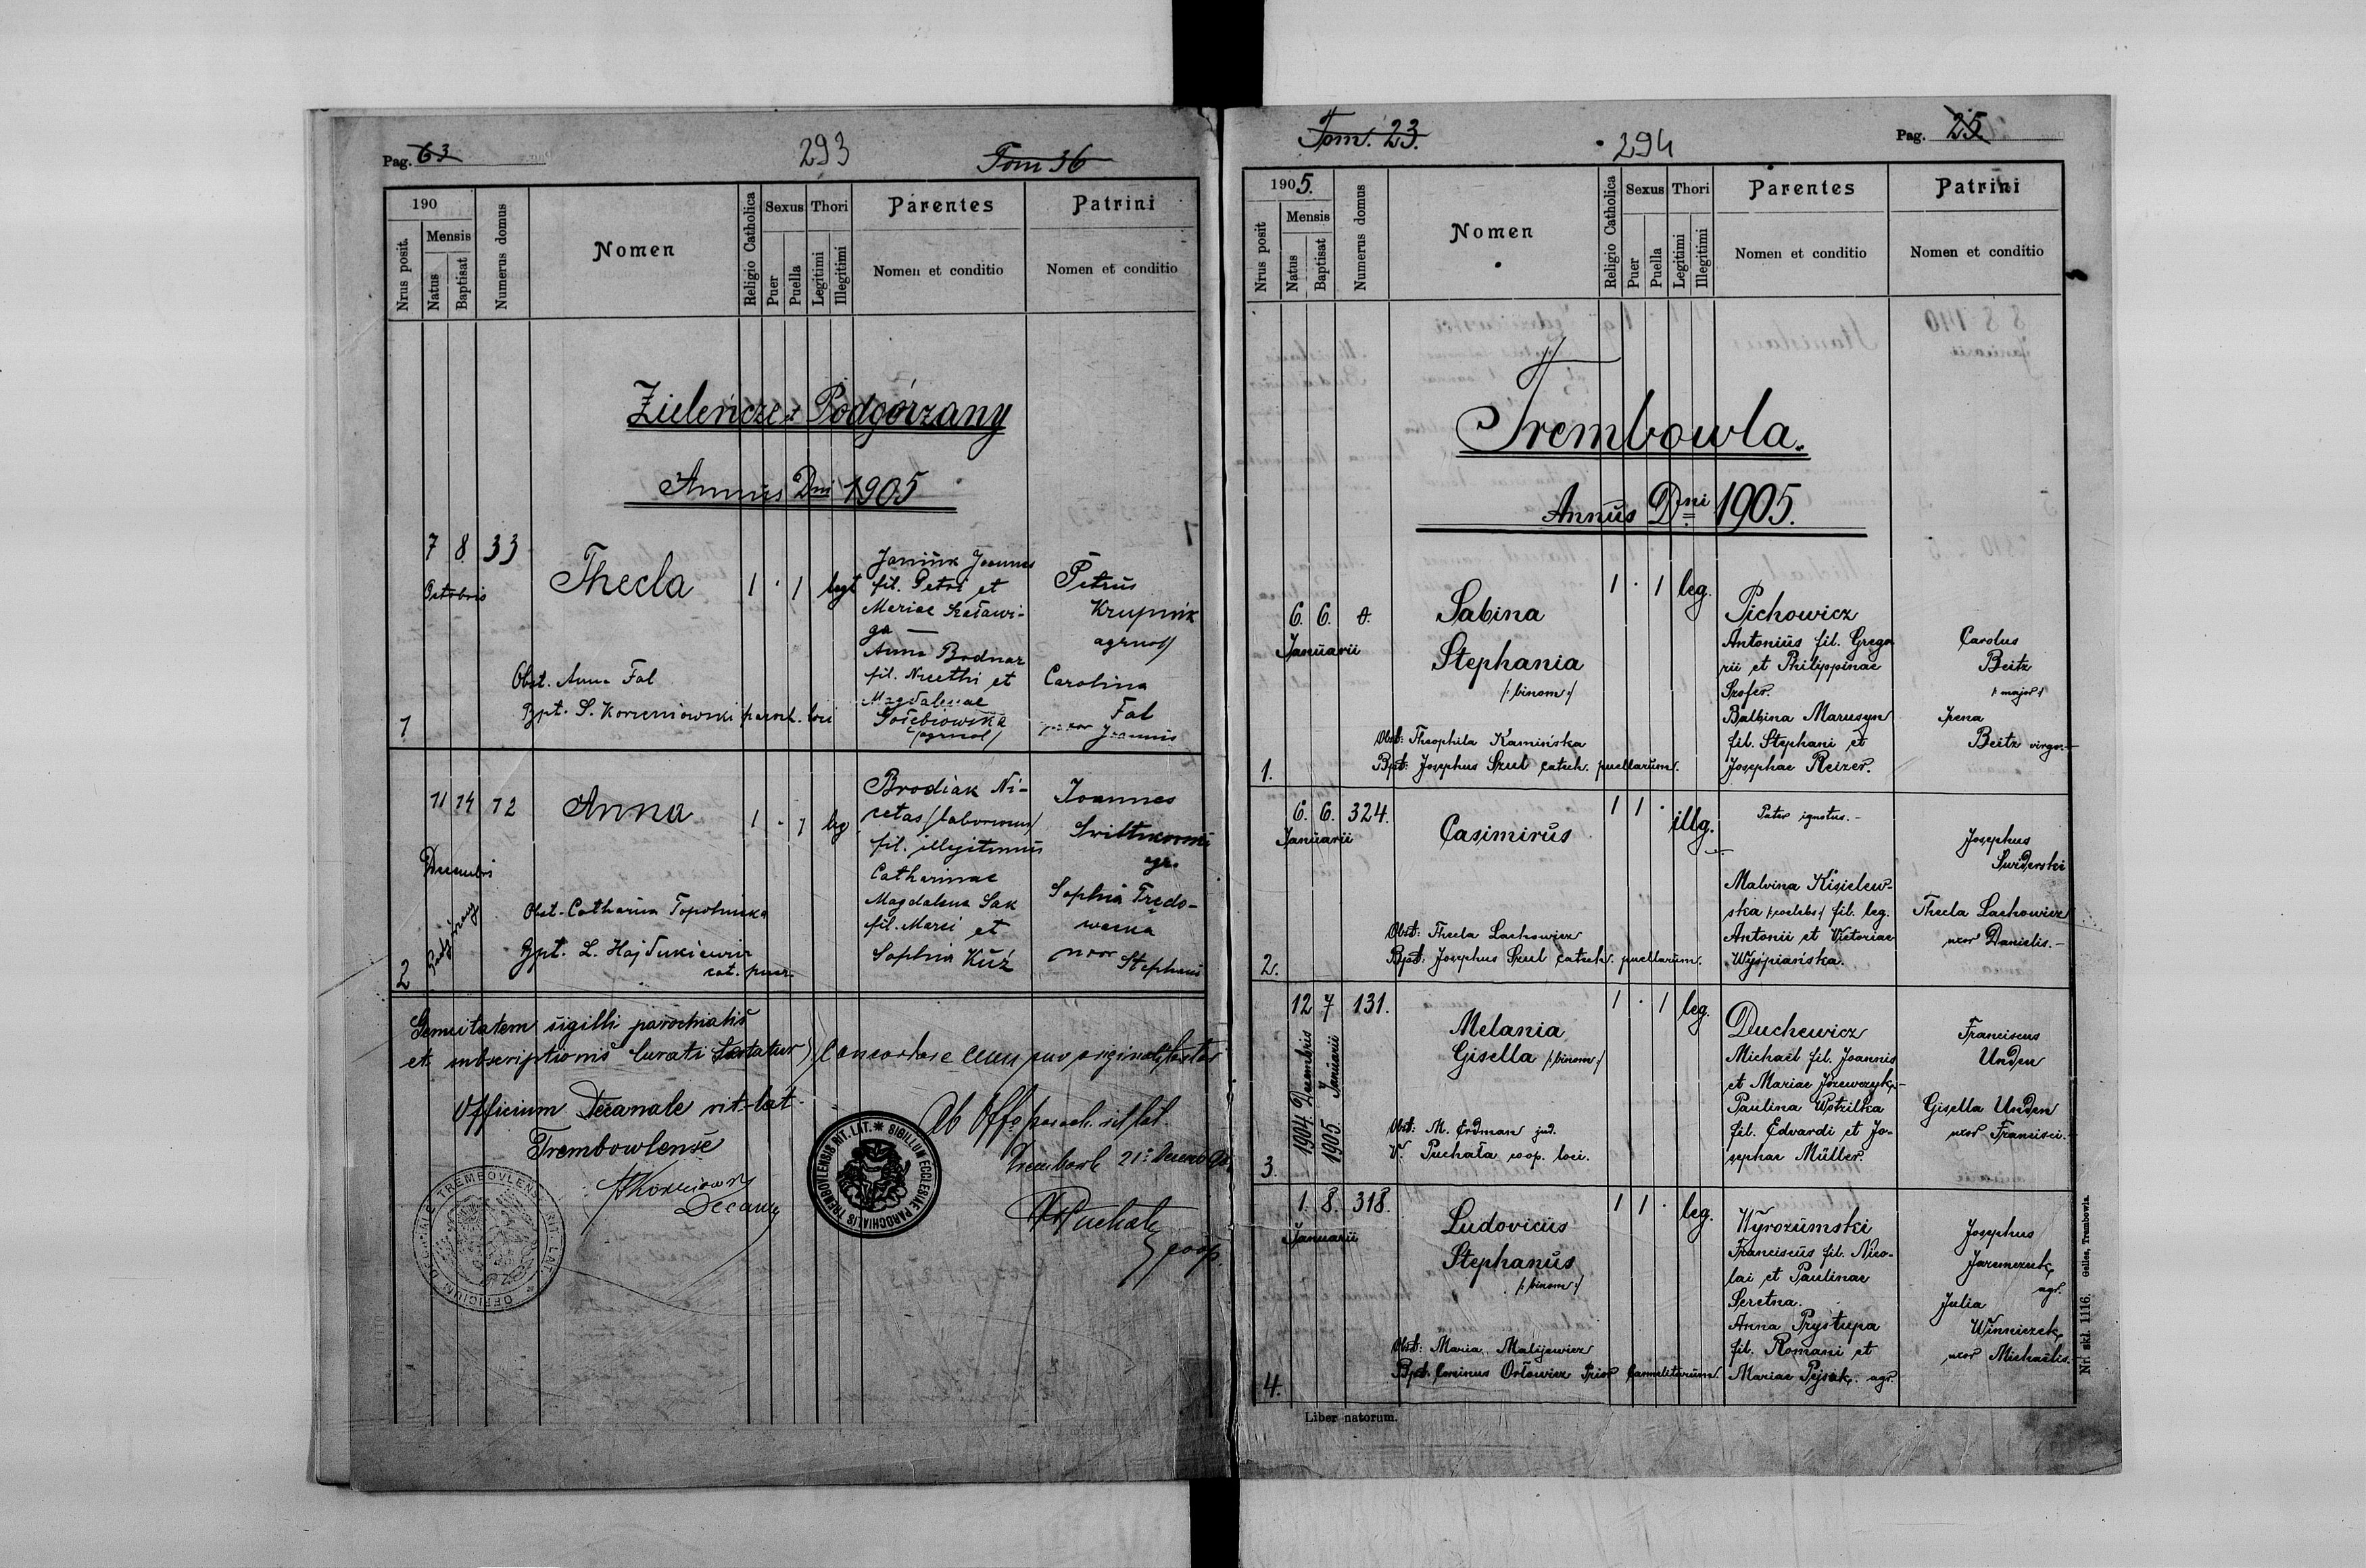 Pag. 63
293
Tom 36
190
Nrus posit.
Mensis
Natus
Baptisat
Numerus domus
Nomen
Religio Catholica
Sexus
Puer
Puella
Thori
Legitimi
Illegitimi
Parentes
Nomen et conditio
Patrini
Nomen et conditio
Zieleńcze et Podgórzany
Annus Dni 1905
7 8. 33
Octobris
Thecla
1 · 1 legt
Janiuk Joannes
fil. Petri et
Mariae
ga —
Anna Bodnar
fil. et
Magdalenae
Gołębiowska
/agricol/
Petrus
Krupnik
agricol/
Carolina
Fal
uxor Joannis
Obst. Anna Fal
Bpt. S. Korzeniowski paroch. loci
1
11 14 12
Decembris
Podgórzany
Anna
1 · 1 leg
Brodiak Ni-
cetas /laboriosus/
fil. illegitimus
Catharinae
Magdalena Sak
fil. Marci et
Sophia Kuź
Joannes
agr.
Sophia Trędo-
wacka
uxor Stephani
Obst. Catharina Topolnicka
Bpt. L. Hajdukiewicz
cat. puer.
2
Genuitatem sigilli parochialis
et subscriptionis Curati testatur
Officium Decanale rit. lat.
Trembowlense
Korzeniowski
Decanus
OFFICIUM DECANALE TREMBOVLENSE RIT. LAT.
Concordare cum suo originali testor
Ab Offo paroch. rit. lat.
SIGILLUM ECCLESIAE PAROCHIALIS TREMBOVLENSIS RIT. LAT.
Puchała
coop.
Tom. 23.
294
Pag. 25
1905.
Nrus posit
Mensis
Natus
Baptisat
Numerus domus
Nomen
Religio Catholica
Sexus
Puer
Puella
Thori
Legitimi
Illegitimi
Parentes
Nomen et conditio
Patrini
Nomen et conditio
Trembowla.
Annus Dni 1905.
6. 6. 0.
Januarii
Sabina
Stephania
/: binom :/
1 · 1 leg.
Pichowicz
Antonius fil. Grego-
rii et Philippinae
Szofer.
Balbina Marusyn
fil. Stephani et
Josephae Reizer.
Carolus
Beitz
/: major :/
Irena
Beitz virgo.—
Obst: Theophila Kamińska
Bpt: Josephus Szul catech. puellarum.
1.
6. 6. 324.
Januarii
Casimirus
1 1 · illg.
Pater ignotus.—
Malvina Kisielew-
ska /:coelebs:/ fil. leg.
Antonii et Victoriae
Wyspiańska.
Josephus
Swiderski
Thecla Lachowicz
uxor Danielis.—
Obst: Thecla Lachowicz
Bpt: Josephus Szul catech. puellarum.
2.
12 7 131.
1904. Decembris
1905. Januarii
Melania
Gisella /:binom:/
1 · 1 leg.
Duchewicz
Michaël fil. Joannis
et Mariae Józewczyk,—
Paulina Wotzilka
fil. Edvardi et Jo-
sephae Müller.
Franciscus
Unden
Gisella Unden
uxor Francisci.—
Obst: M. Erdman jud.
V. Puchała coop. loci.
3.
1. 8. 318.
Januarii
Ludovicus
Stephanus
/: binom :/
1 1 · leg.
Wyrozumski
Franciscus fil. Nico-
lai et Paulinae
Seretna.
Anna Prystupa
fil. Romani et
Mariae Pejsak. agr.
Josephus
Jaremczuk,
agr.
Julia
Winniczek,
uxor Michaëlis.
Obst: Maria Malijewicz
Bpt. Orłowicz Prior Carmelitarum.
4.
Liber natorum.
Nr. skł. 1116. Gelles, Trembowla.